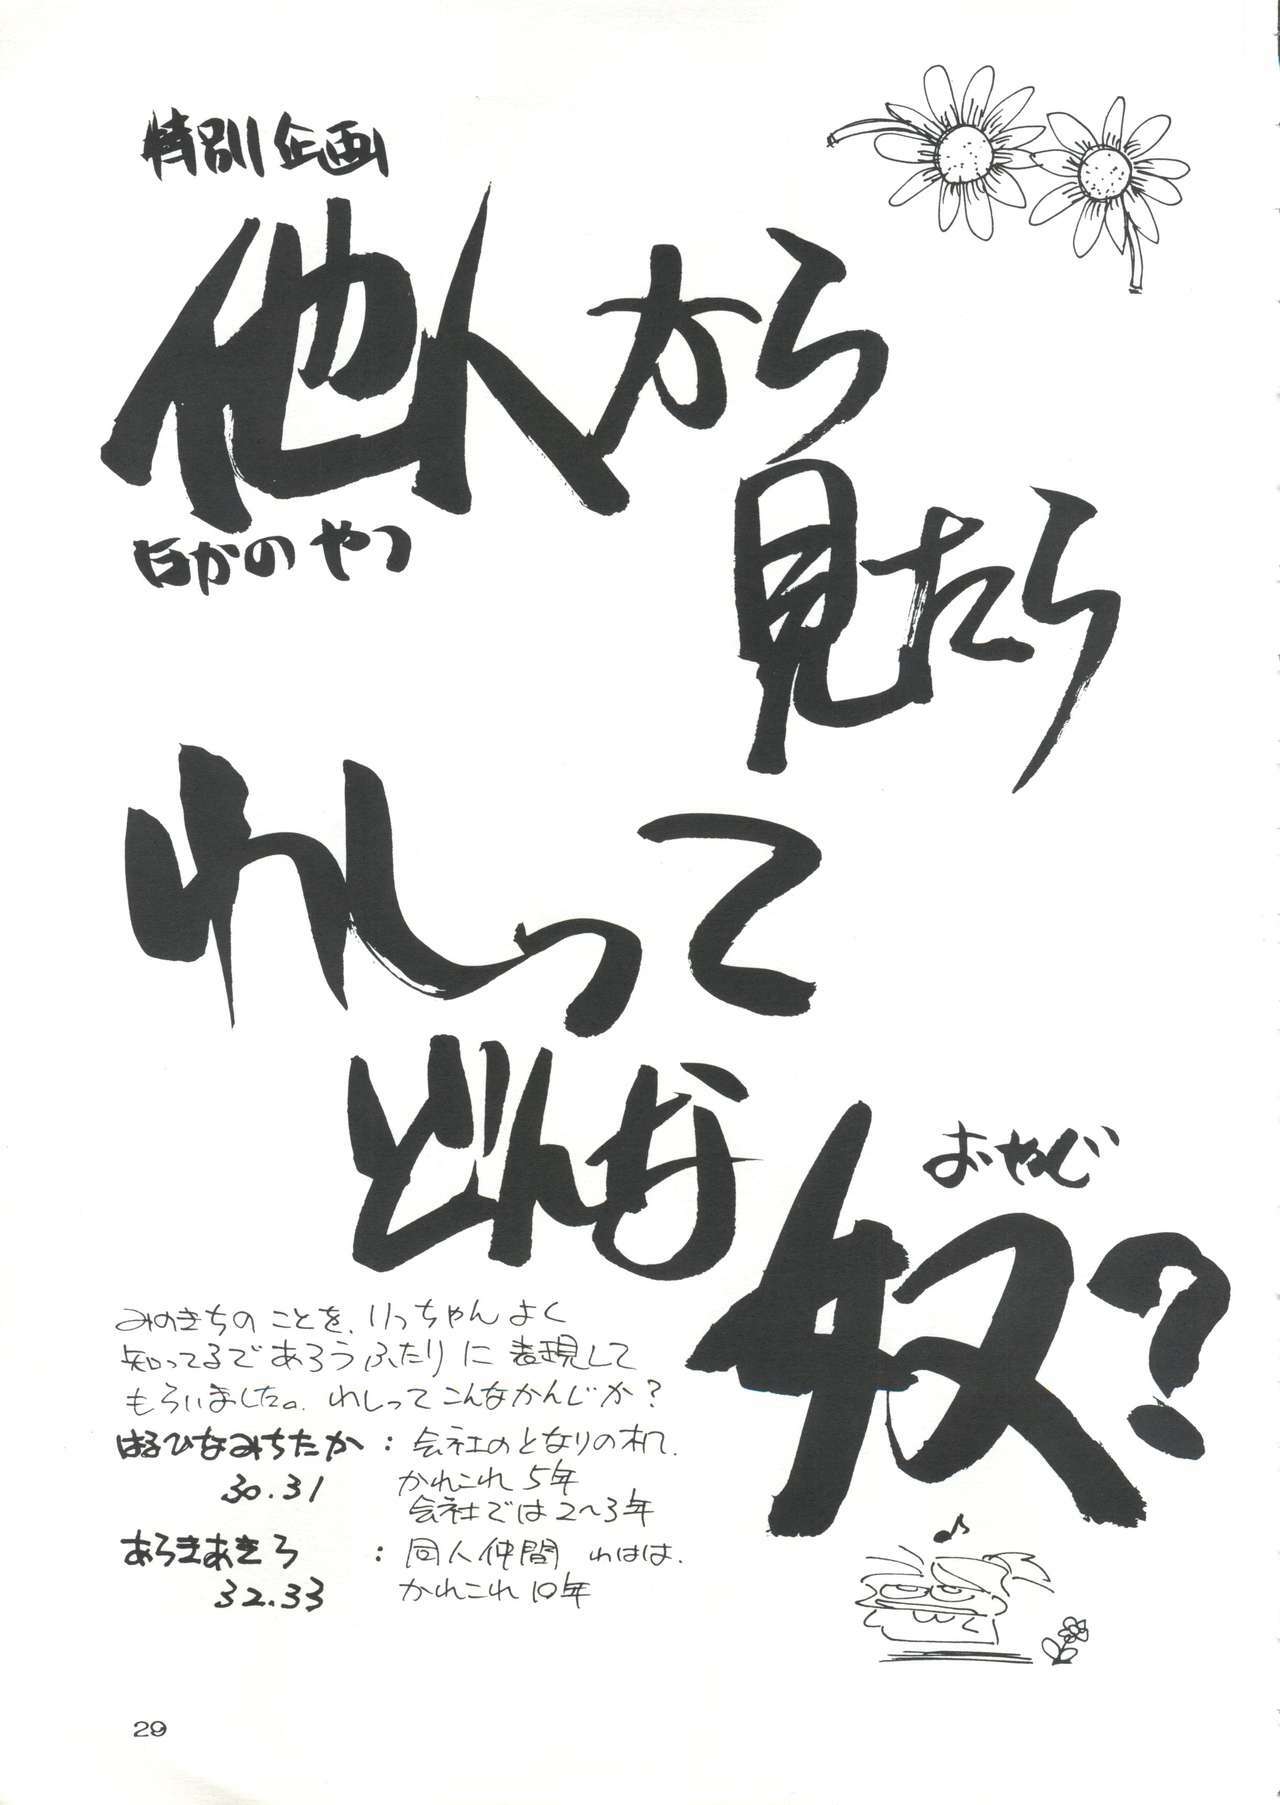 特別企画
他人から
ほかのやつ
見たら
わしって
どんな
おやじ
奴?
みのきちのことを、いっちゃんよく
知ってるであろうふたりに表現して
もらいました。わしってこんなかんじか?
はるひなみちたか : 会社のとなりの机。
30.31 かれこれ5年
会社では2〜3年
あろきあきろ : 同人仲間 わはは.
32.33 かれこれ10年
29